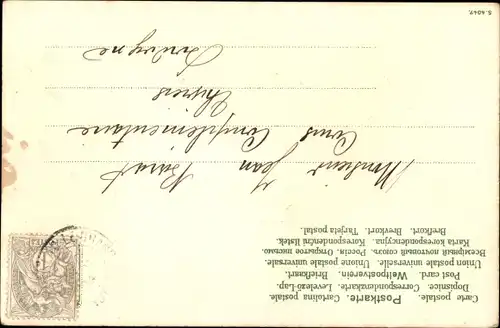 Carte postale. Cartolina postale
Dopisnice. Correspondenzkarte. Levelező-Lap.
Postkarte.
Post card. Weltpostverein. Briefkaart.
Union postale universelle. Unione postale universale
Всемірный почтовый союзъ Россія. Открытое письмо.
Karta korespondencyjna. Korespondenční lístek
Brefkort. Brevkort. Tarjeta postal.
Monsieur Jean Barat
Cours Complémentaire
Thiviers
Dordogne
S. 4047.